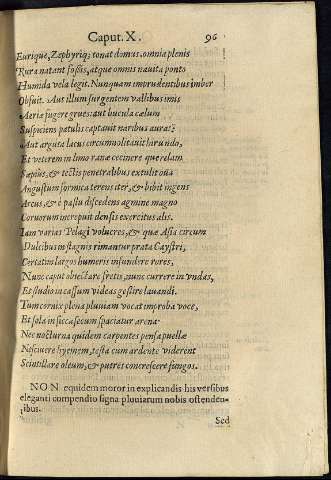 Caput. X. 96
Eurique, Zephyriq; tonat domus, omnia plenis
Rura natant fossis, atque omnis nauita ponto
Humida vela legit. Nunquam imprudentibus imber
Obfuit. Aut illum surgentem vallibus imis
Aeriæ fugere grues: aut bucula cælum
Suspiciens patulis captauit naribus auras:
Aut arguta lacus circumuolitauit hirundo,
Et veterem in limo ranæ cecinere querelam
Sæpius, & tectis penetralibus extulit oua
Angustum formica terens iter, & bibit ingens
Arcus, & è pastu discedens agmine magno
Coruorum increpuit densis exercitus alis.
Iam varias Pelagi volucres, & quæ Asia circum
Dulcibus in stagnis rimantur prata Caystri,
Certatim largos humeris infundere rores,
Nunc caput obiectare fretis, nunc currere in vndas,
Et studio incassum videas gestire lauandi.
Tum cornix plena pluuiam vocat improba voce,
Et sola in sicca secum spaciatur arena.
Nec nocturna quidem carpentes pensa puellæ
Nesciuere hyemem, testa cum ardente viderent
Scintillare oleum, & putres concrescere fungos.
NON equidem moror in explicandis his versibus
eleganti compendio signa pluuiarum nobis ostenden-
tibus.
Sed